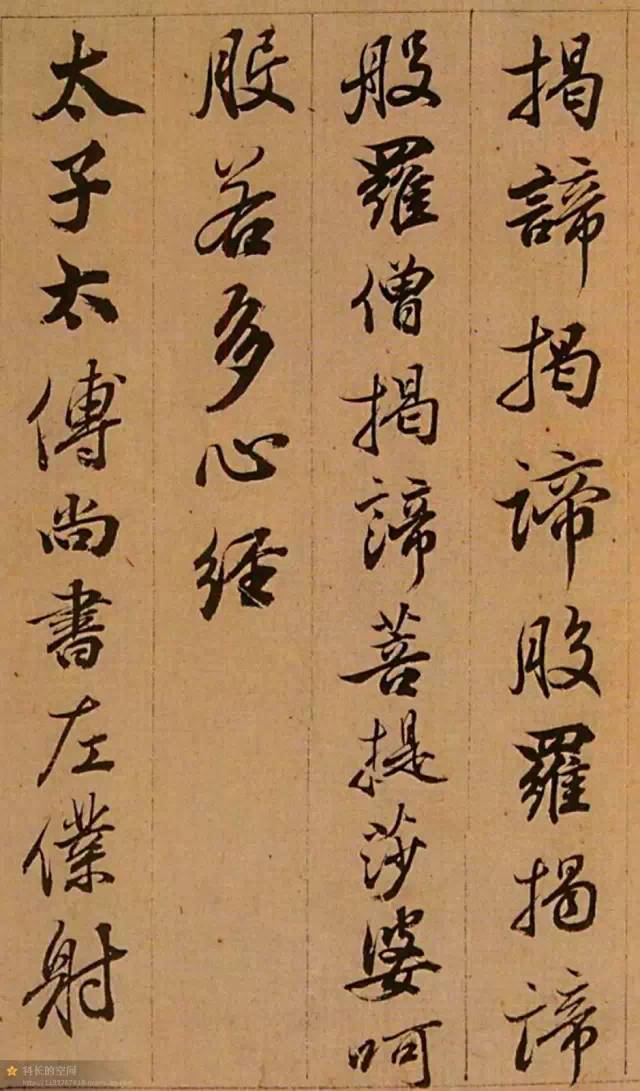 揭諦揭諦般羅揭諦
般羅僧揭諦菩提莎婆呵
般若多心經
太子太傅尚書左僕射
科长的空间